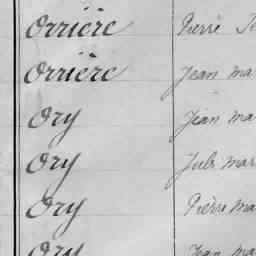 Orrière Pierre
Orrière Jean Ma
Ory Jean Ma
Ory Jule Mar
Ory Pierre Ma
Ory Jean Ma